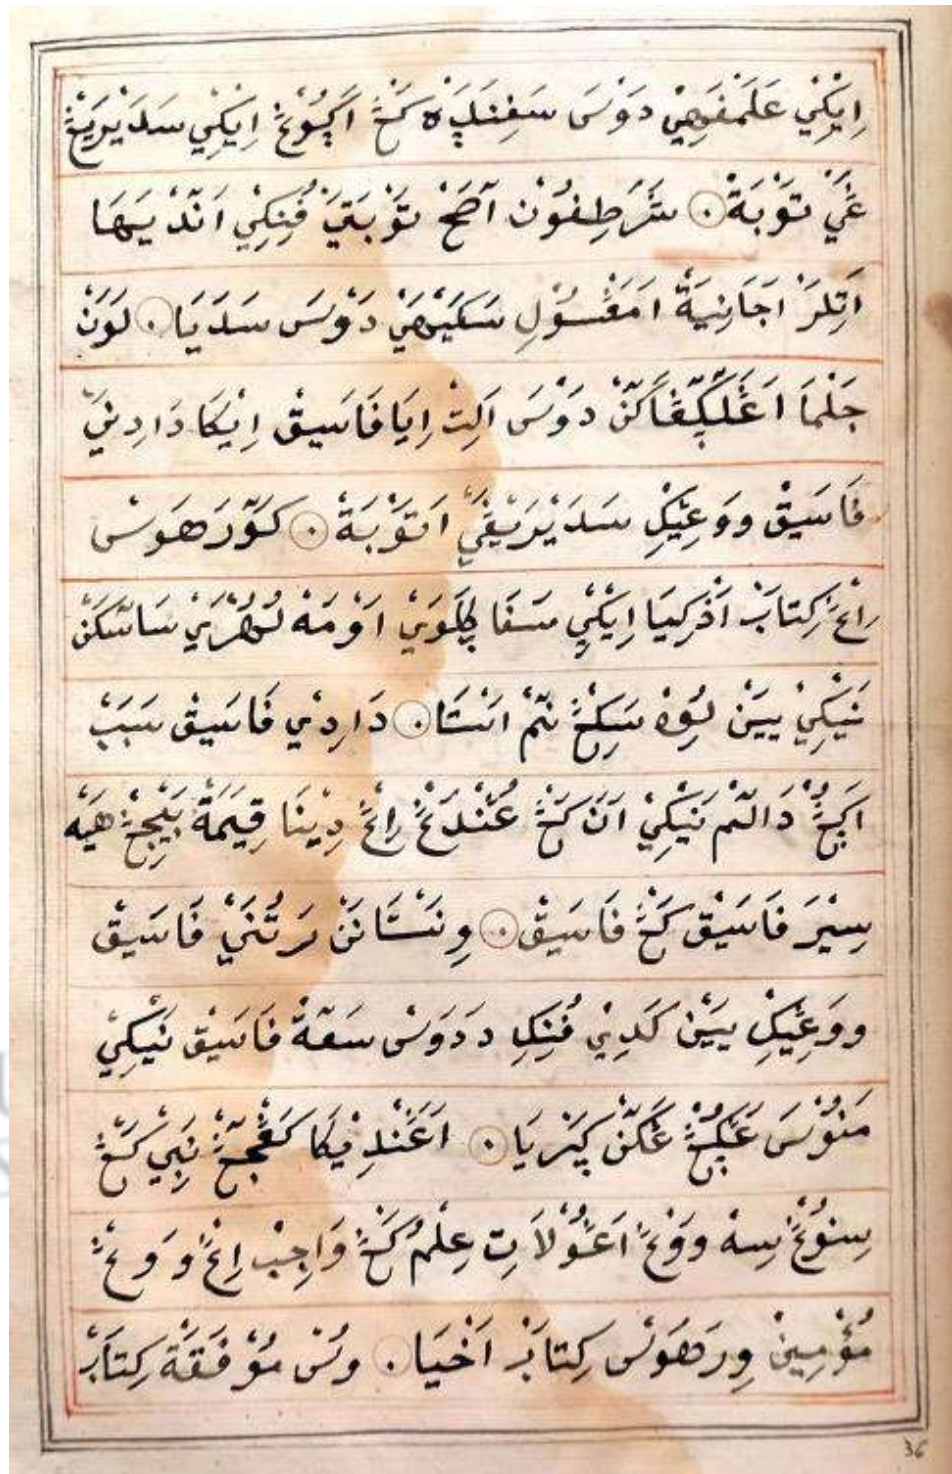 اِيْكِيْ عَلَمْفَهِيْ دَوْسَ سَفِنَڮَهْ كَڠْ اَڮُوْڠْ اِيْكِيْ سَدَيْرَيْڠْ
غَيْ تَوْبَةْ ۝ شَرَطِفُوْن اَصَحْ تَوْبَتَيْ فُنِكِيْ اَنَّدْ يَهَا
اَتِلَرْ اَجَانِيَةْ اَمَڠْسُوْلِ سَكَيْهَيْ دَوْسَ سَدَيَا ۝ لَوَنْ
جَلْمَا اَڠَلَڮَّڠَاكَنْ دَوْسَ اَلِتْ اِيَا فَاسَيِقْ اِيْكَا دَادِنَيْ
فَاسَيِقْ ووَڠِيْكِ سَدَيْرَيْڠَيْ اَتَوْبَةْ ۝ كَوّرَهَوْسْ
رِاڠْ كِتَابْ اَذْكِيَا اِيْكِيْ سَفَا ڮَلَوَيْ اَوْمَهْ لُهُرَيْ سَاسّكَنْ
نَيْكِيْ يَيْن لُوِهْ سَكِڠْ نَمْ اَسْتَا ۝ دَادِيْ فَاسَيِقْ سَبَبْ
اَڮُڠْ دَالَمْ نَيْكِيْ اَنَ كَڠْ عُنْدَڠْ اِڠْ دِيْنَا قِيَمَةْ بَيْجِڠْ هَيَه
سِيْرَ فَاسَيِقْ كَڠْ فَاسَيِقْ ۝ وِنَسْتَانَنْ مَرْتَنَيْ فَاسَيِقْ
ووَڠِيْكِ يَيْن كَدِيْ فُنِكِ دَدَوَسْ سَعَةْ فَاسَيِقْ نَيْكِيْ
مَنُوْسَ عَڮُڠْ عَكَنْ ڮَنَرْ يَا ۝ اَعَنْدِيْكَا كَڠْجَڠْ نَبِيْ كَڠْ
سِنُوْڠْ سِهْ ووَڠْ اَعُوْلَاتِ عِلْمُ كَڠْ وَاجِبْ اِڠْ وَوڠْ
مُؤْمِيِنْ وِرَهَوَسْ كِتَابْ اَحْيَا ۝ وُسْ مُوْفَقَةْ كِتَابْ
36